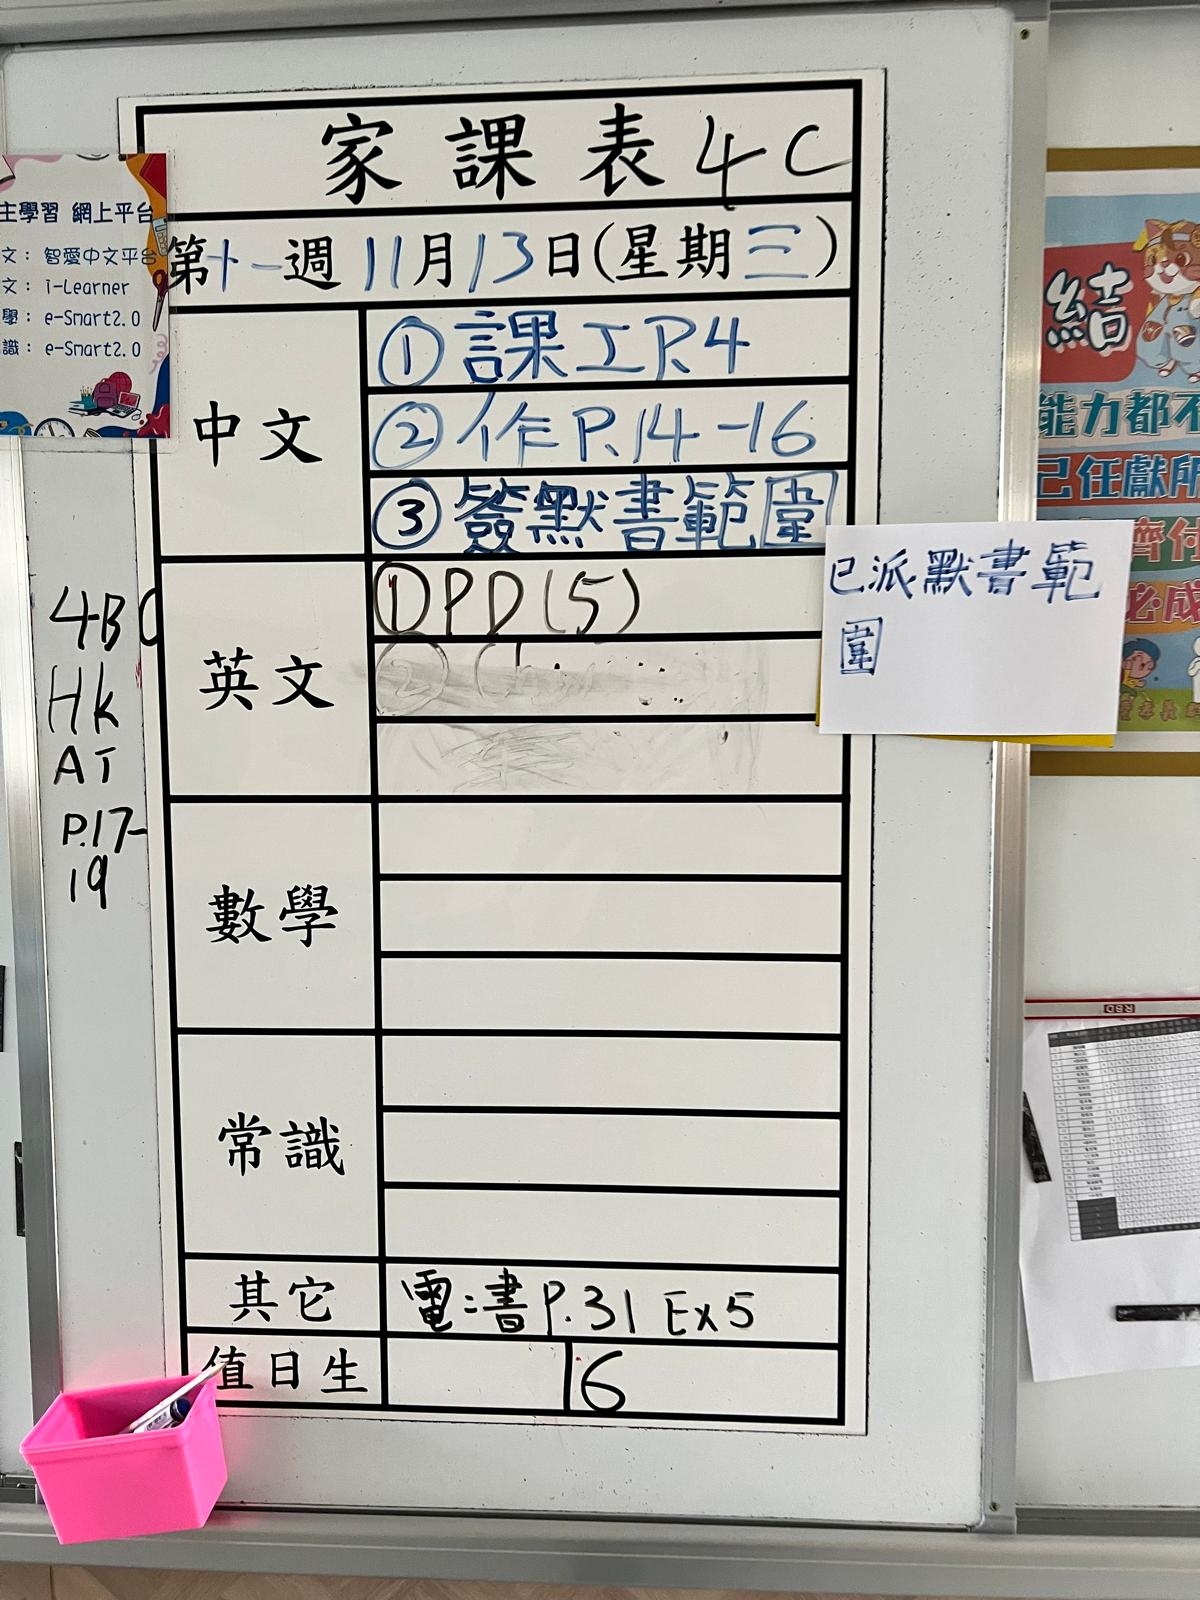 家課表 4C
第十一週 11月13日(星期三)
中文
①課工P.4
②作P.14-16
③簽默書範圍
英文
①PD(5)
②
數學
常識
其它
電:書P.31 Ex5
值日生
16
主學習 網上平台
文：智愛中文平台
文：i-Learner
學：e-Smart2.0
識：e-Smart2.0
4B
HK
AT
P.17-
19
已派默書範
圍
結
能力都不
己任獻所
齊付
必成
RBD